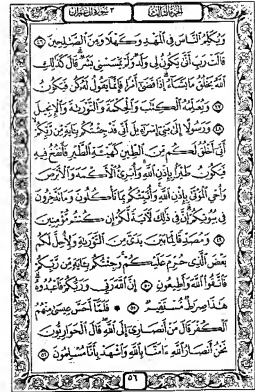 الجزء الثالث ٣ سورة آل عمران
وَيُكَلِّمُ النَّاسَ فِى الْمَهْدِ وَكَهْلًا وَمِنَ الصَّـٰلِحِينَ ٤٦
قَالَتْ رَبِّ أَنَّىٰ يَكُونُ لِى وَلَدٌ وَلَمْ يَمْسَسْنِى بَشَرٌ قَالَ كَذَٰلِكِ
اللَّهُ يَخْلُقُ مَا يَشَآءُ إِذَا قَضَىٰٓ أَمْرًا فَإِنَّمَا يَقُولُ لَهُۥ كُن فَيَكُونُ
٤٧ وَيُعَلِّمُهُ الْكِتَـٰبَ وَالْحِكْمَةَ وَالتَّوْرَىٰةَ وَالْإِنجِيلَ
٤٨ وَرَسُولًا إِلَىٰ بَنِىٓ إِسْرَٰٓءِيلَ أَنِّى قَدْ جِئْتُكُم بِـَٔايَةٍ مِّن رَّبِّكُمْ
أَنِّىٓ أَخْلُقُ لَكُم مِّنَ الطِّينِ كَهَيْـَٔةِ الطَّيْرِ فَأَنفُخُ فِيهِ
فَيَكُونُ طَيْرًۢا بِإِذْنِ اللَّهِ وَأُبْرِئُ الْأَكْمَهَ وَالْأَبْرَصَ
وَأُحْىِ الْمَوْتَىٰ بِإِذْنِ اللَّهِ وَأُنَبِّئُكُم بِمَا تَأْكُلُونَ وَمَا تَدَّخِرُونَ
فِى بُيُوتِكُمْ إِنَّ فِى ذَٰلِكَ لَـَٔايَةً لَّكُمْ إِن كُنتُم مُّؤْمِنِينَ
٤٩ وَمُصَدِّقًا لِّمَا بَيْنَ يَدَىَّ مِنَ التَّوْرَىٰةِ وَلِأُحِلَّ لَكُم
بَعْضَ الَّذِى حُرِّمَ عَلَيْكُمْ وَجِئْتُكُم بِـَٔايَةٍ مِّن رَّبِّكُمْ
فَاتَّقُوا اللَّهَ وَأَطِيعُونِ ٥٠ إِنَّ اللَّهَ رَبِّى وَرَبُّكُمْ فَاعْبُدُوهُ
هَـٰذَا صِرَٰطٌ مُّسْتَقِيمٌ ٥١ فَلَمَّآ أَحَسَّ عِيسَىٰ مِنْهُمُ
الْكُفْرَ قَالَ مَنْ أَنصَارِىٓ إِلَى اللَّهِ قَالَ الْحَوَارِيُّونَ
نَحْنُ أَنصَارُ اللَّهِ ءَامَنَّا بِاللَّهِ وَاشْهَدْ بِأَنَّا مُسْلِمُونَ ٥٢
٥٦